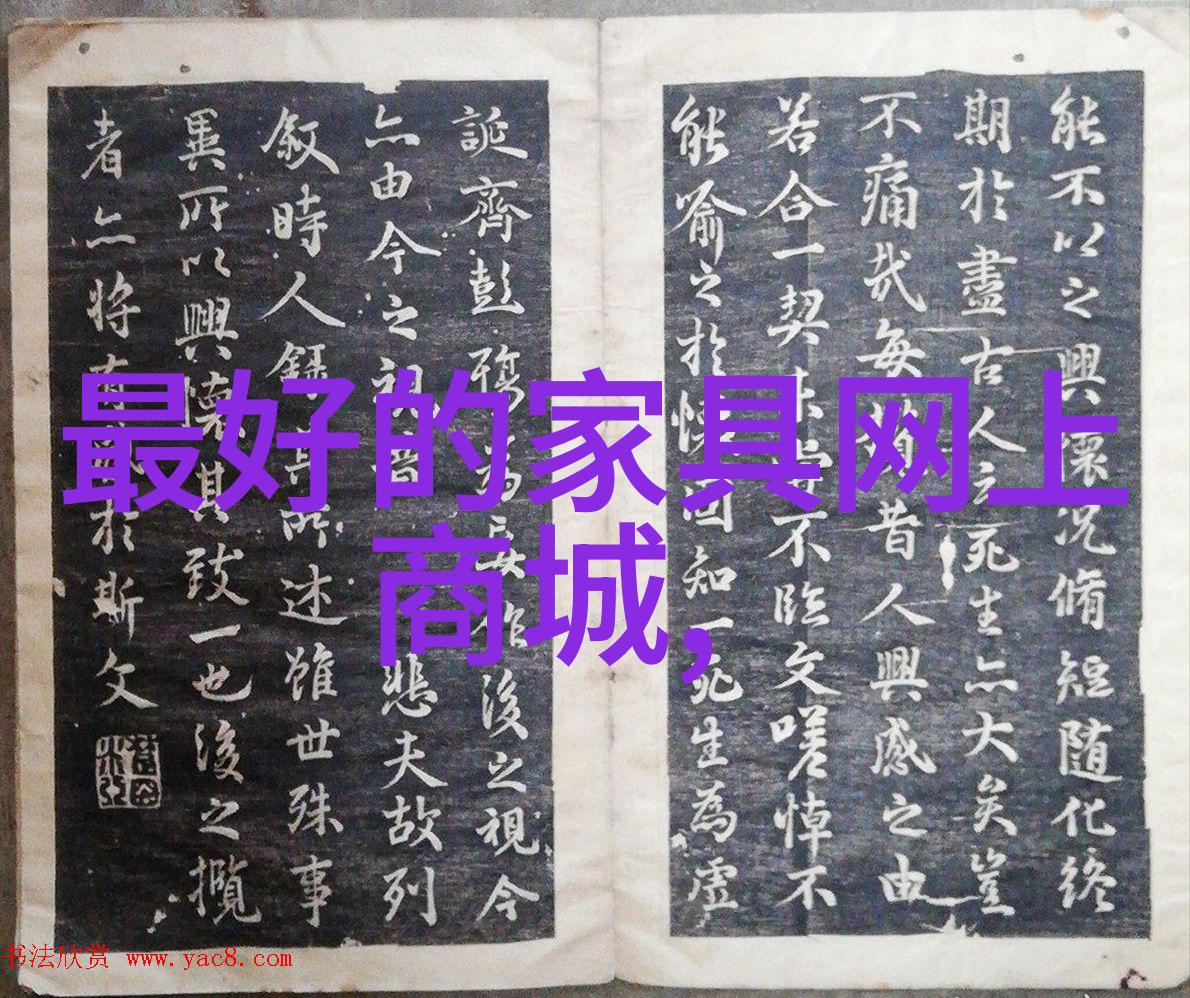 能不以之興懷況脩短随化終
期於盡古人云死生亦大矣豈
不痛哉每昔人興感之由
若合一契不臨文嗟悼不
能喻之於固知一死生為虛
誕齊彭殤為妄作後之視今
亦由今之視昔悲夫故列
敘時人所述雖世殊事
異所以興懷其致一也後之攬
者亦將有於斯文
最好的家具网上
商城,
书法欣赏 www.yac8.com